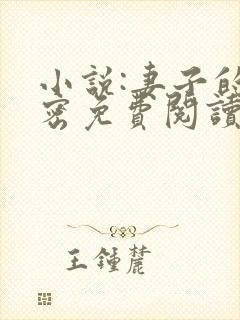 小説:妻子的
密免費閱讀
王鍾麓